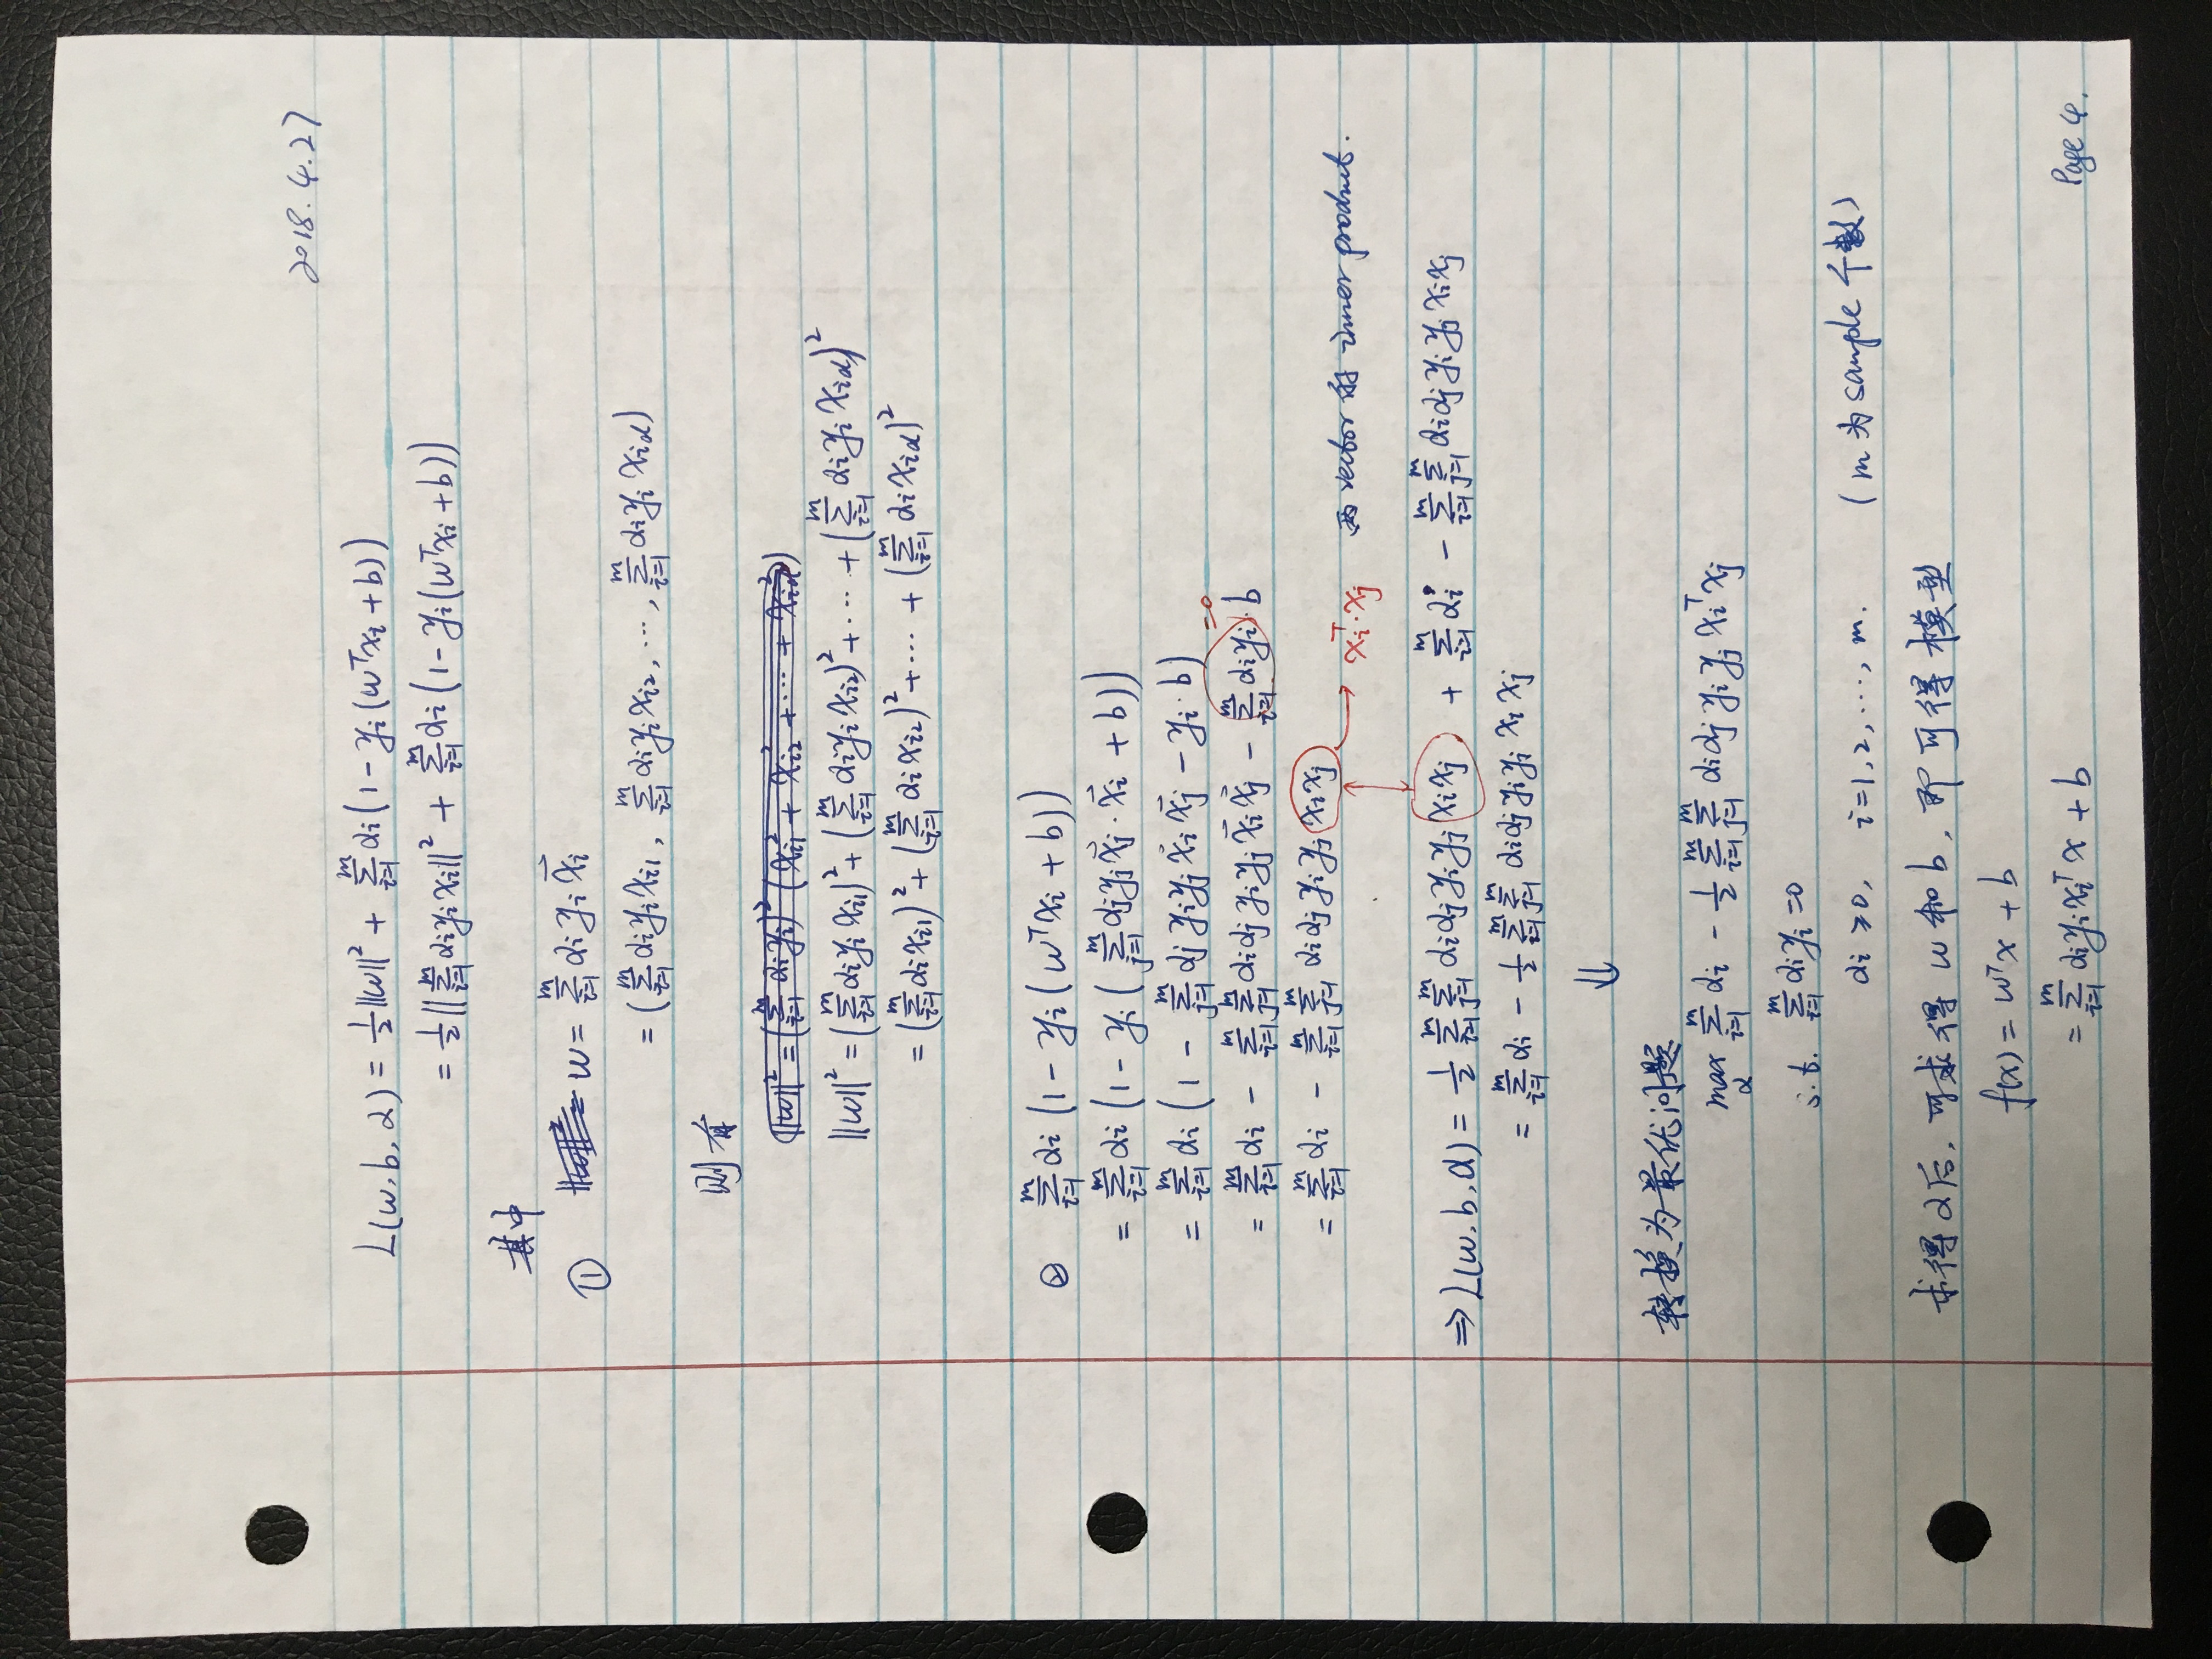 2018.4.27
L(w, b, α) = ½||w||² + ∑_{i=1}^{m} αi (1 - yi (wᵀxi + b))
= ½||∑_{i=1}^{m} αi yi xi||² + ∑_{i=1}^{m} αi (1 - yi (wᵀxi + b))
其中
① w = ∑_{i=1}^{m} αi yi x⃗i
= (∑_{i=1}^{m} αi yi xi1, ∑_{i=1}^{m} αi yi xi2, ⋯, ∑_{i=1}^{m} αi yi xid)
则有
||w||² = (∑_{i=1}^{m} αi yi)² (xi1² + xi2² + ⋯ + xid²)
||w||² = (∑_{i=1}^{m} αi yi xi1)² + (∑_{i=1}^{m} αi yi xi2)² + ⋯ + (∑_{i=1}^{m} αi yi xid)²
= (∑_{i=1}^{m} αi xi1)² + (∑_{i=1}^{m} αi xi2)² + ⋯ + (∑_{i=1}^{m} αi xid)²
② ∑_{i=1}^{m} αi (1 - yi (wᵀxi + b))
= ∑_{i=1}^{m} αi (1 - yi (∑_{j=1}^{m} αj yj x⃗j · x⃗i + b))
= ∑_{i=1}^{m} αi (1 - ∑_{j=1}^{m} αj yi yj x⃗i x⃗j - yi · b)
=0
= ∑_{i=1}^{m} αi - ∑_{i=1}^{m} ∑_{j=1}^{m} αi αj yi yj x⃗i x⃗j - ∑_{i=1}^{m} αi yi · b
= ∑_{i=1}^{m} αi - ∑_{i=1}^{m} ∑_{j=1}^{m} αi αj yi yj xi xj
→ xiᵀ · xj 两 vector 的 inner product.
⇒ L(w, b, α) = ½ ∑_{i=1}^{m} ∑_{j=1}^{m} αi αj yi yj xi xj + ∑_{i=1}^{m} αi - ∑_{i=1}^{m} ∑_{j=1}^{m} αi αj yi yj xi xj
= ∑_{i=1}^{m} αi - ½ ∑_{i=1}^{m} ∑_{j=1}^{m} αi αj yi yj xi xj
⇓
转换为最优问题
max_α ∑_{i=1}^{m} αi - ½ ∑_{i=1}^{m} ∑_{j=1}^{m} αi αj yi yj xiᵀ xj
s.t. ∑_{i=1}^{m} αi yi = 0
αi ≥ 0, i = 1, 2, ⋯, m. (m 为 sample 个数)
求得 α 后, 可求得 w 和 b, 即可得模型
f(x) = wᵀx + b
= ∑_{i=1}^{m} αi yi xiᵀ x + b
Page 4.